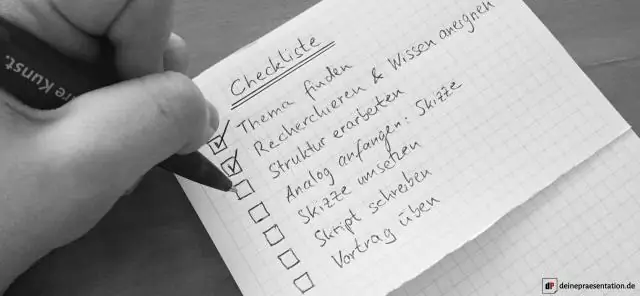 Checkliste
Thema finden
Recherchieren & Wissen aneignen
Struktur erarbeiten
Analog anfangen: Skizze
Skizze umsetzen
Skript schreiben
Vortrag üben
re Kunst.
dP deinepraesentation.de